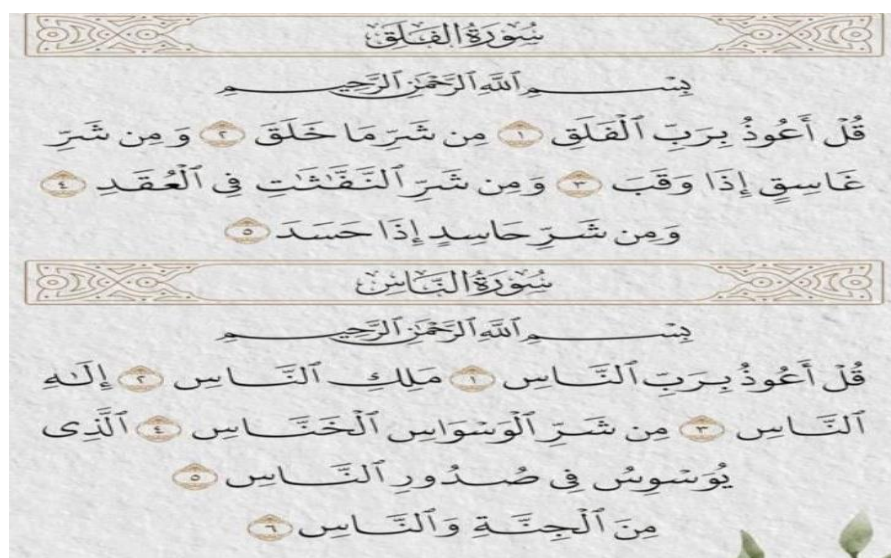 سُورَةُ الفَلَقِ
بِسْمِ ٱللَّهِ ٱلرَّحْمَٰنِ ٱلرَّحِيمِ
قُلْ أَعُوذُ بِرَبِّ ٱلْفَلَقِ ١ مِن شَرِّ مَا خَلَقَ ٢ وَمِن شَرِّ
غَاسِقٍ إِذَا وَقَبَ ٣ وَمِن شَرِّ ٱلنَّفَّٰثَٰتِ فِى ٱلْعُقَدِ ٤
وَمِن شَرِّ حَاسِدٍ إِذَا حَسَدَ ٥
سُورَةُ النَّاسِ
بِسْمِ ٱللَّهِ ٱلرَّحْمَٰنِ ٱلرَّحِيمِ
قُلْ أَعُوذُ بِرَبِّ ٱلنَّاسِ ١ مَلِكِ ٱلنَّاسِ ٢ إِلَٰهِ
ٱلنَّاسِ ٣ مِن شَرِّ ٱلْوَسْوَاسِ ٱلْخَنَّاسِ ٤ ٱلَّذِى
يُوَسْوِسُ فِى صُدُورِ ٱلنَّاسِ ٥
مِنَ ٱلْجِنَّةِ وَٱلنَّاسِ ٦